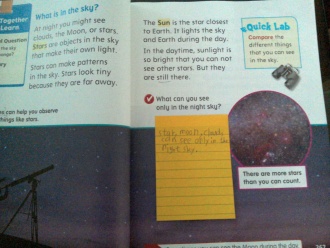 Together
Learn
Question
the sky
change?
What is in the sky?
At night you might see
clouds, the Moon, or stars.
Stars are objects in the sky
that make their own light.
Stars can make patterns
in the sky. Stars look tiny
because they are far away.
can help you observe
things like stars.
The Sun is the star closest
to Earth. It lights the sky
and Earth during the day.
In the daytime, sunlight is
so bright that you can not
see other stars. But they
are still there.
What can you see
only in the night sky?
see only in the
night sky.
Quick Lab
Compare the
different things
that you can see
in the sky.
There are more stars
than you can count.
the Moon during the day